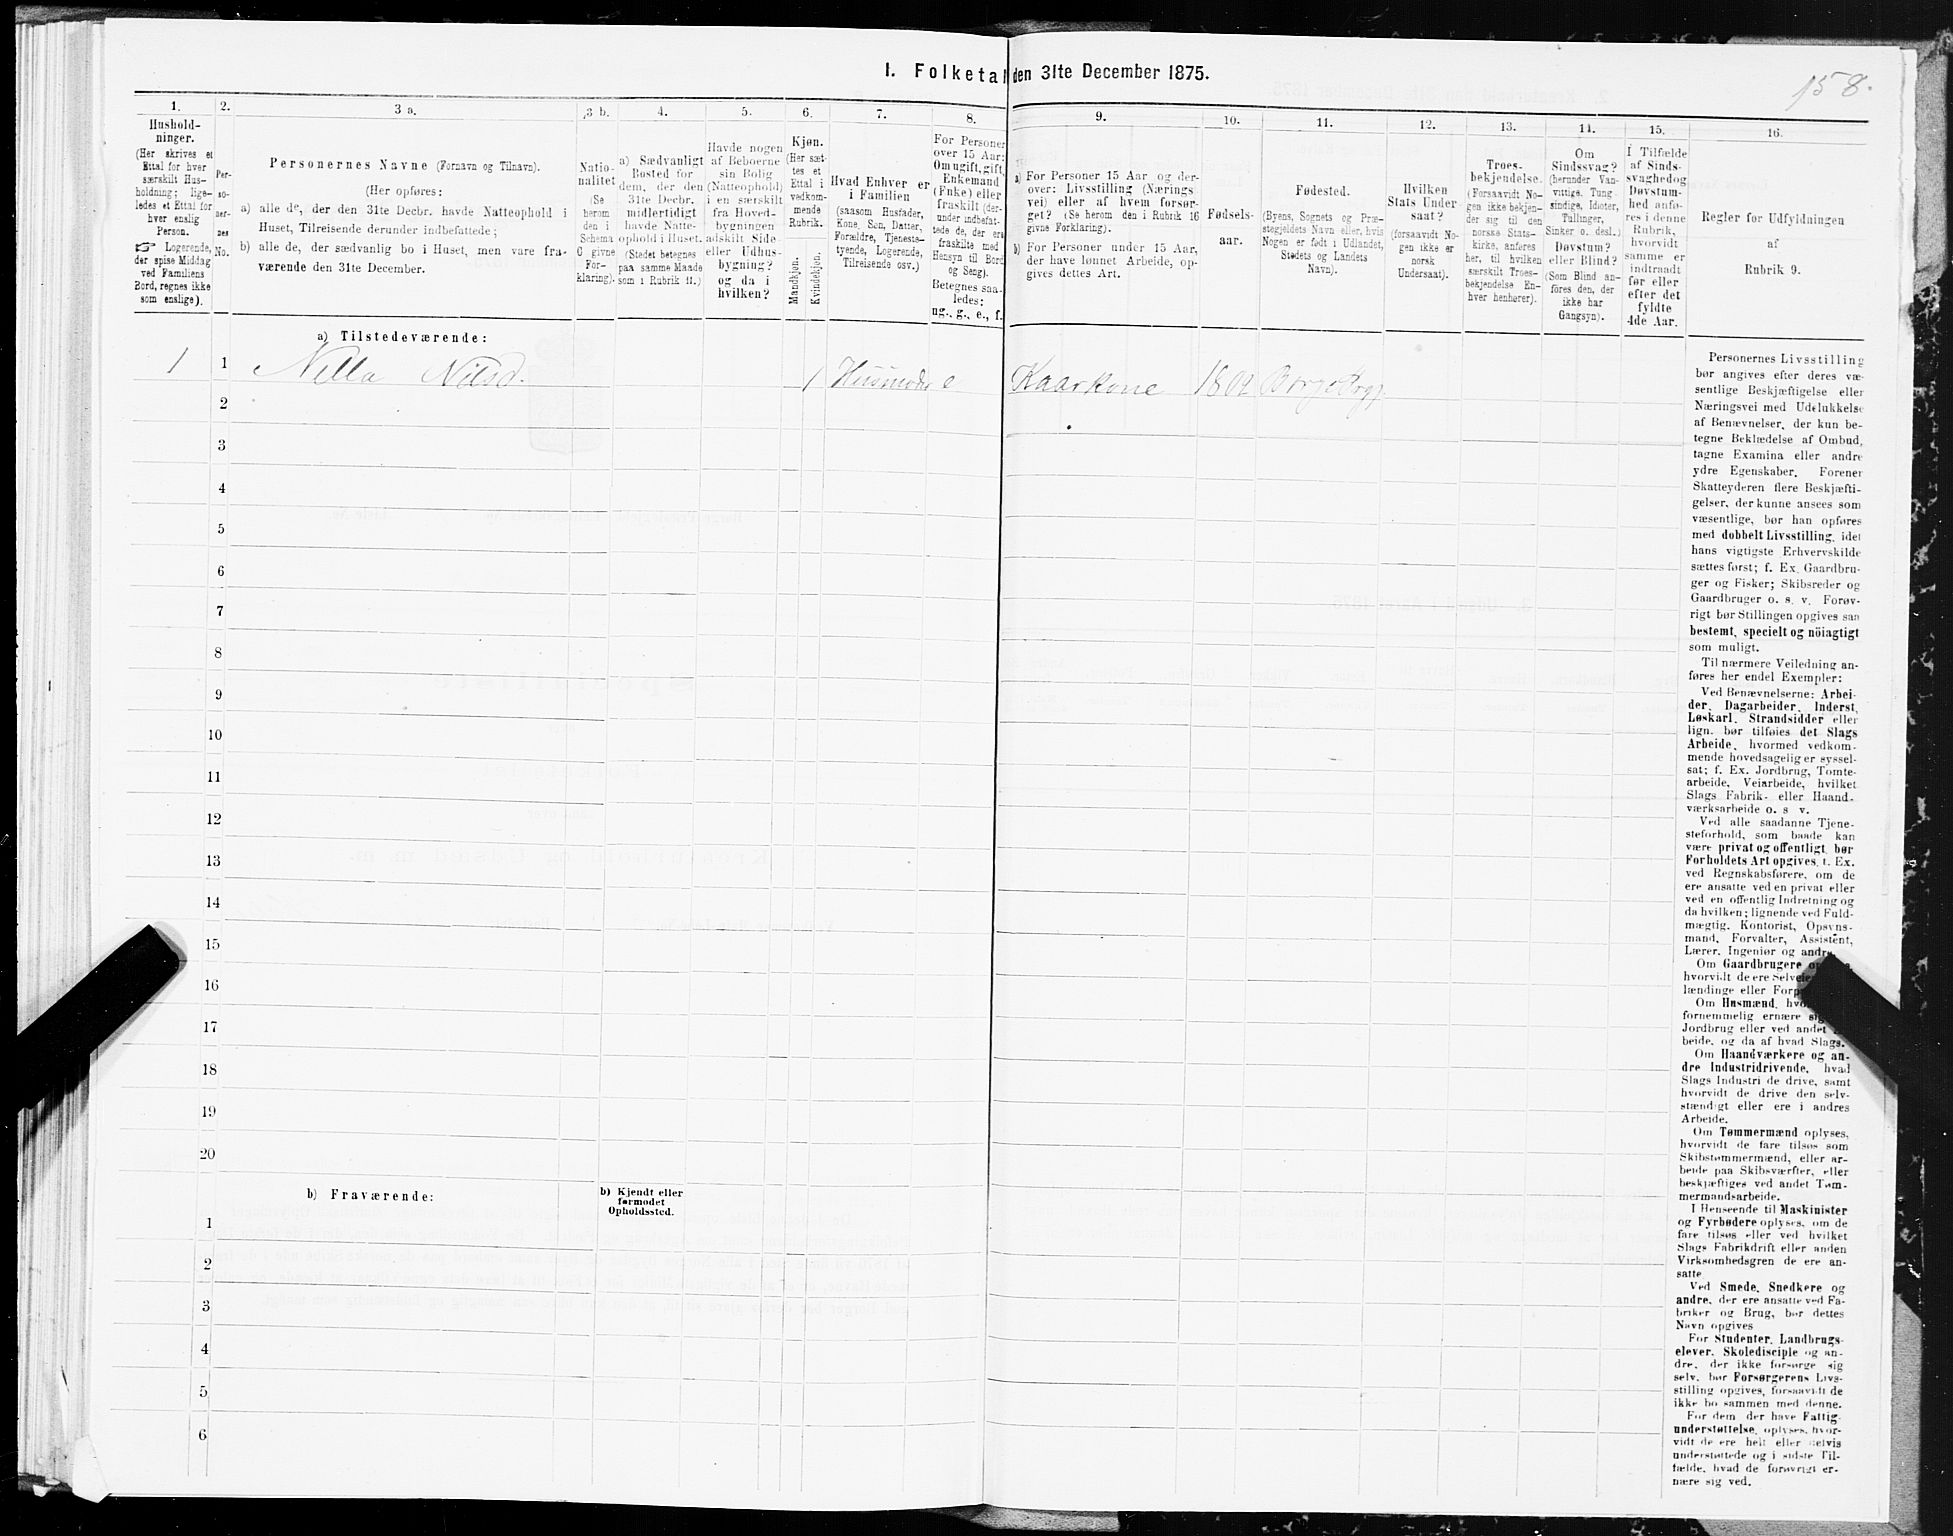 I. Folketal den 31te December 1875.
158.
1.
Hushold-
ninger.
(Her skrives et
Ettal for hver
særskilt Hus-
holdning; lige-
ledes et Ettal for
hver enslig
Person.
☞ Logerende,
der spise Middag
ved Familiens
Bord, regnes ikke
som enslige).
2.
Per-
so-
ner-
nes
No.
3 a.
Personernes Navne (Fornavn og Tilnavn).
(Her opføres:
a) alle de, der den 31te Decbr. havde Natteophold i
Huset, Tilreisende derunder indbefattede;
b) alle de, der sædvanlig bo i Huset, men vare fra-
værende den 31te December.
3 b.
Natio-
nalitet
(Se
herom
den i
Schema
C givne
For-
klaring).
4.
a) Sædvanligt
Bosted for
dem, der den
31te Decbr.
midlertidigt
havde Natte-
ophold i Huset.
(Stedet betegnes
paa samme Maade
som i Rubrik 11.)
5.
Havde nogen
af Beboerne
sin Bolig
(Natteophold)
i en særskilt
fra Hoved-
bygningen
adskilt Side-
eller Udhus-
bygning?
og da i
hvilken?
6.
Kjøn.
(Her sæt-
tes et
Ettal i
vedkom-
mende
Rubrik.
Mandkjøn.
Kvindekjøn.
7.
Hvad Enhver er
i Familien
(saasom Husfader,
Kone, Søn, Datter,
Forældre, Tjeneste-
tyende, Logerende,
Tilreisende osv.)
8.
For Personer
over 15 Aar:
Om ugift, gift,
Enkemand
(Enke) eller
fraskilt (der-
under indbefat-
tede de, der ere
fraskilte med
Hensyn til Bord
og Seng).
Betegnes saa-
ledes:
ug., g., e., f.
9.
a) For Personer 15 Aar og der-
over: Livsstilling (Nærings
vei) eller af hvem forsør-
get? (Se herom den i Rubrik 16
givne Forklaring).
b) For Personer under 15 Aar,
der have lønnet Arbeide, op-
gives dettes Art.
10.
Fødsels-
aar.
11.
Fødested.
(Byens, Sognets og Præ-
stegjeldets Navn eller, hvis
Nogen er født i Udlandet,
Stedets og Landets
Navn).
12.
Hvilken
Stats Under
saat?
(forsaavidt No-
gen ikke er
norsk
Undersaat).
13.
Troes-
bekjendelse.
(Forsaavidt No-
gen ikke bekjen-
der sig til den
norske Stats-
kirke, anføres
her, til hvilken
særskilt Troes-
bekjendelse En-
hver henhører).
14.
Om
Sindssvag?
(herunder Van-
vittige, Tung-
sindige, Idioter,
Tullinger,
Sinker o. desl.)
Døvstum?
eller Blind?
(Som Blind an-
føres den, der
ikke har
Gangsyn).
15.
I Tilfælde
af Sinds-
svaghed og
Døvstum-
hed anfø-
res i denne
Rubrik,
hvorvidt
samme er
indtraadt
før eller
efter det
fyldte
4de Aar.
16.
Regler for Udfyldningen
af
Rubrik 9.
a) Tilstedeværende:
1 1 Nilla Nilsd. 1 Husmoder e Kaarkone 1802
2
3
4
5
6
7
8
9
10
11
12
13
14
15
16
17
18
19
20
b) Fraværende:
b) Kjendt eller
formodet
Opholdssted.
1
2
3
4
5
6
Personernes Livsstilling
bør angives efter deres væ-
sentlige Beskjæftigelse eller
Næringsvei med Udelukkelse
af Benævnelser, der kun be-
tegne Beklædelse af Ombud,
tagne Examina eller andre
ydre Egenskaber. Forener
Skatteyderen flere Beskjæfti-
gelser, der kunne ansees som
væsentlige, bør han opføres
med dobbelt Livsstilling, idet
hans vigtigste Erhvervskilde
sættes først; f. Ex. Gaardbru-
ger og Fisker; Skibsreder og
Gaardbruger o. s. v. Forøv-
rigt bør Stillingen opgives saa
bestemt, specielt og nöiagtigt
som muligt.
Til nærmere Veiledning an-
føres her endel Exempler:
Ved Benævnelserne: Arbei-
der, Dagarbeider, Inderst,
Løskarl, Strandsidder eller
lign. bør tilføies det Slags
Arbeide, hvormed vedkom-
mende hovedsagelig er syssel-
sat; f. Ex. Jordbrug, Tomte-
arbeide, Veiarbeide, hvilket
Slags Fabrik- eller Haand-
værksarbeide o. s v.
Ved alle saadanne Tjene-
steforhold, som baade kan
være privat og offentligt, bør
Forholdets Art opgives, f. Ex.
ved Regnskabsførere, om de
ere ansatte ved en privat eller
ved en offentlig Indretning og
da hvilken; lignende ved Fuld-
mægtig, Kontorist, Opsyns-
mand, Forvalter, Assistent,
Lærer, Ingeniør og andre.
Om Gaardbrugere
hvorvidt de ere
lændinge eller
Om Husmænd,
fornemmelig ernære
Jordbrug eller ved andet
beide, og da af hvad Slags.
Om Haandværkere og an-
dre Industridrivende, hvad
Slags Industri de drive, samt
hvorvidt de drive den selv-
stændigt eller ere i andres
Arbeide.
Om Tømmermænd oplyses,
hvorvidt de fare tilsøs som
Skibstømmermænd, eller ar-
beide paa Skibsværfter, eller
beskjæftiges ved andet Tøm-
mermandsarbeide.
I Henseende til Maskinister
og Fyrbødere oplyses, om de
fare tilsøs eller ved hvilket
Slags Fabrikdrift eller anden
Virksomhedsgren de ere an-
satte
Ved Smede, Snedkere og
andre, der ere ansatte ved Fa-
briker og Brug, bør dettes
Navn opgives
For Studenter, Landbrugs-
elever, Skoledisciple og an-
dre, der ikke forsørge sig
selv, bør Forsørgerens Livs-
stilling opgives, forsaavidt de
ikke bo sammen med denne.
For dem der have Fattig-
understøttelse, oplyses, hvor-
vidt de ere helt eller delvis
understøttede og i sidste Til-
fælde, hvad de forøvrigt er-
nære sig ved.